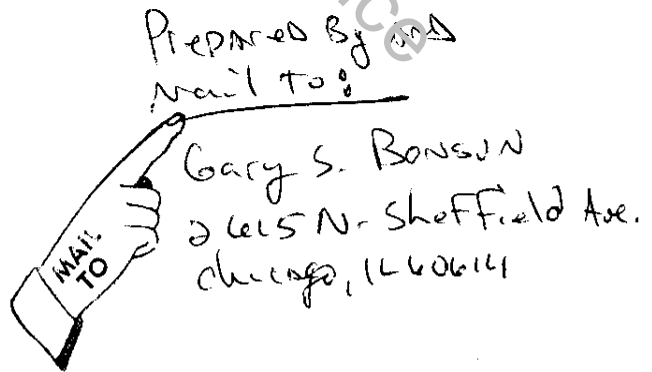 Prepared By and
Mail to:
Gary S. Bonsun
2615 N. Sheffield Ave.
Chicago, IL 60614
MAIL
TO